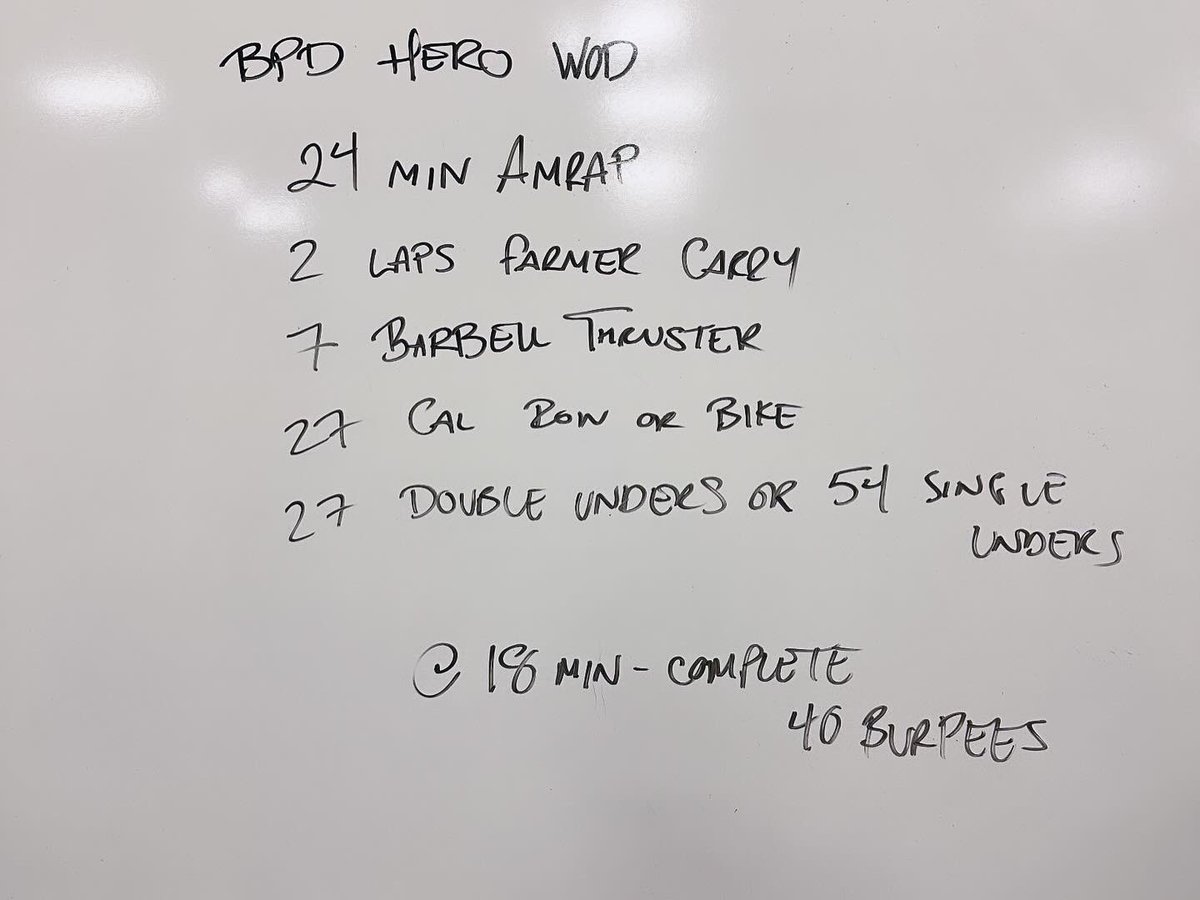 BPD HERO WOD
24 MIN AMRAP
2 LAPS FARMER CARRY
7 BARBELL THRUSTER
27 CAL ROW OR BIKE
27 DOUBLE UNDERS OR 54 SINGLE
UNDERS
@ 18 MIN - COMPLETE
40 BURPEES